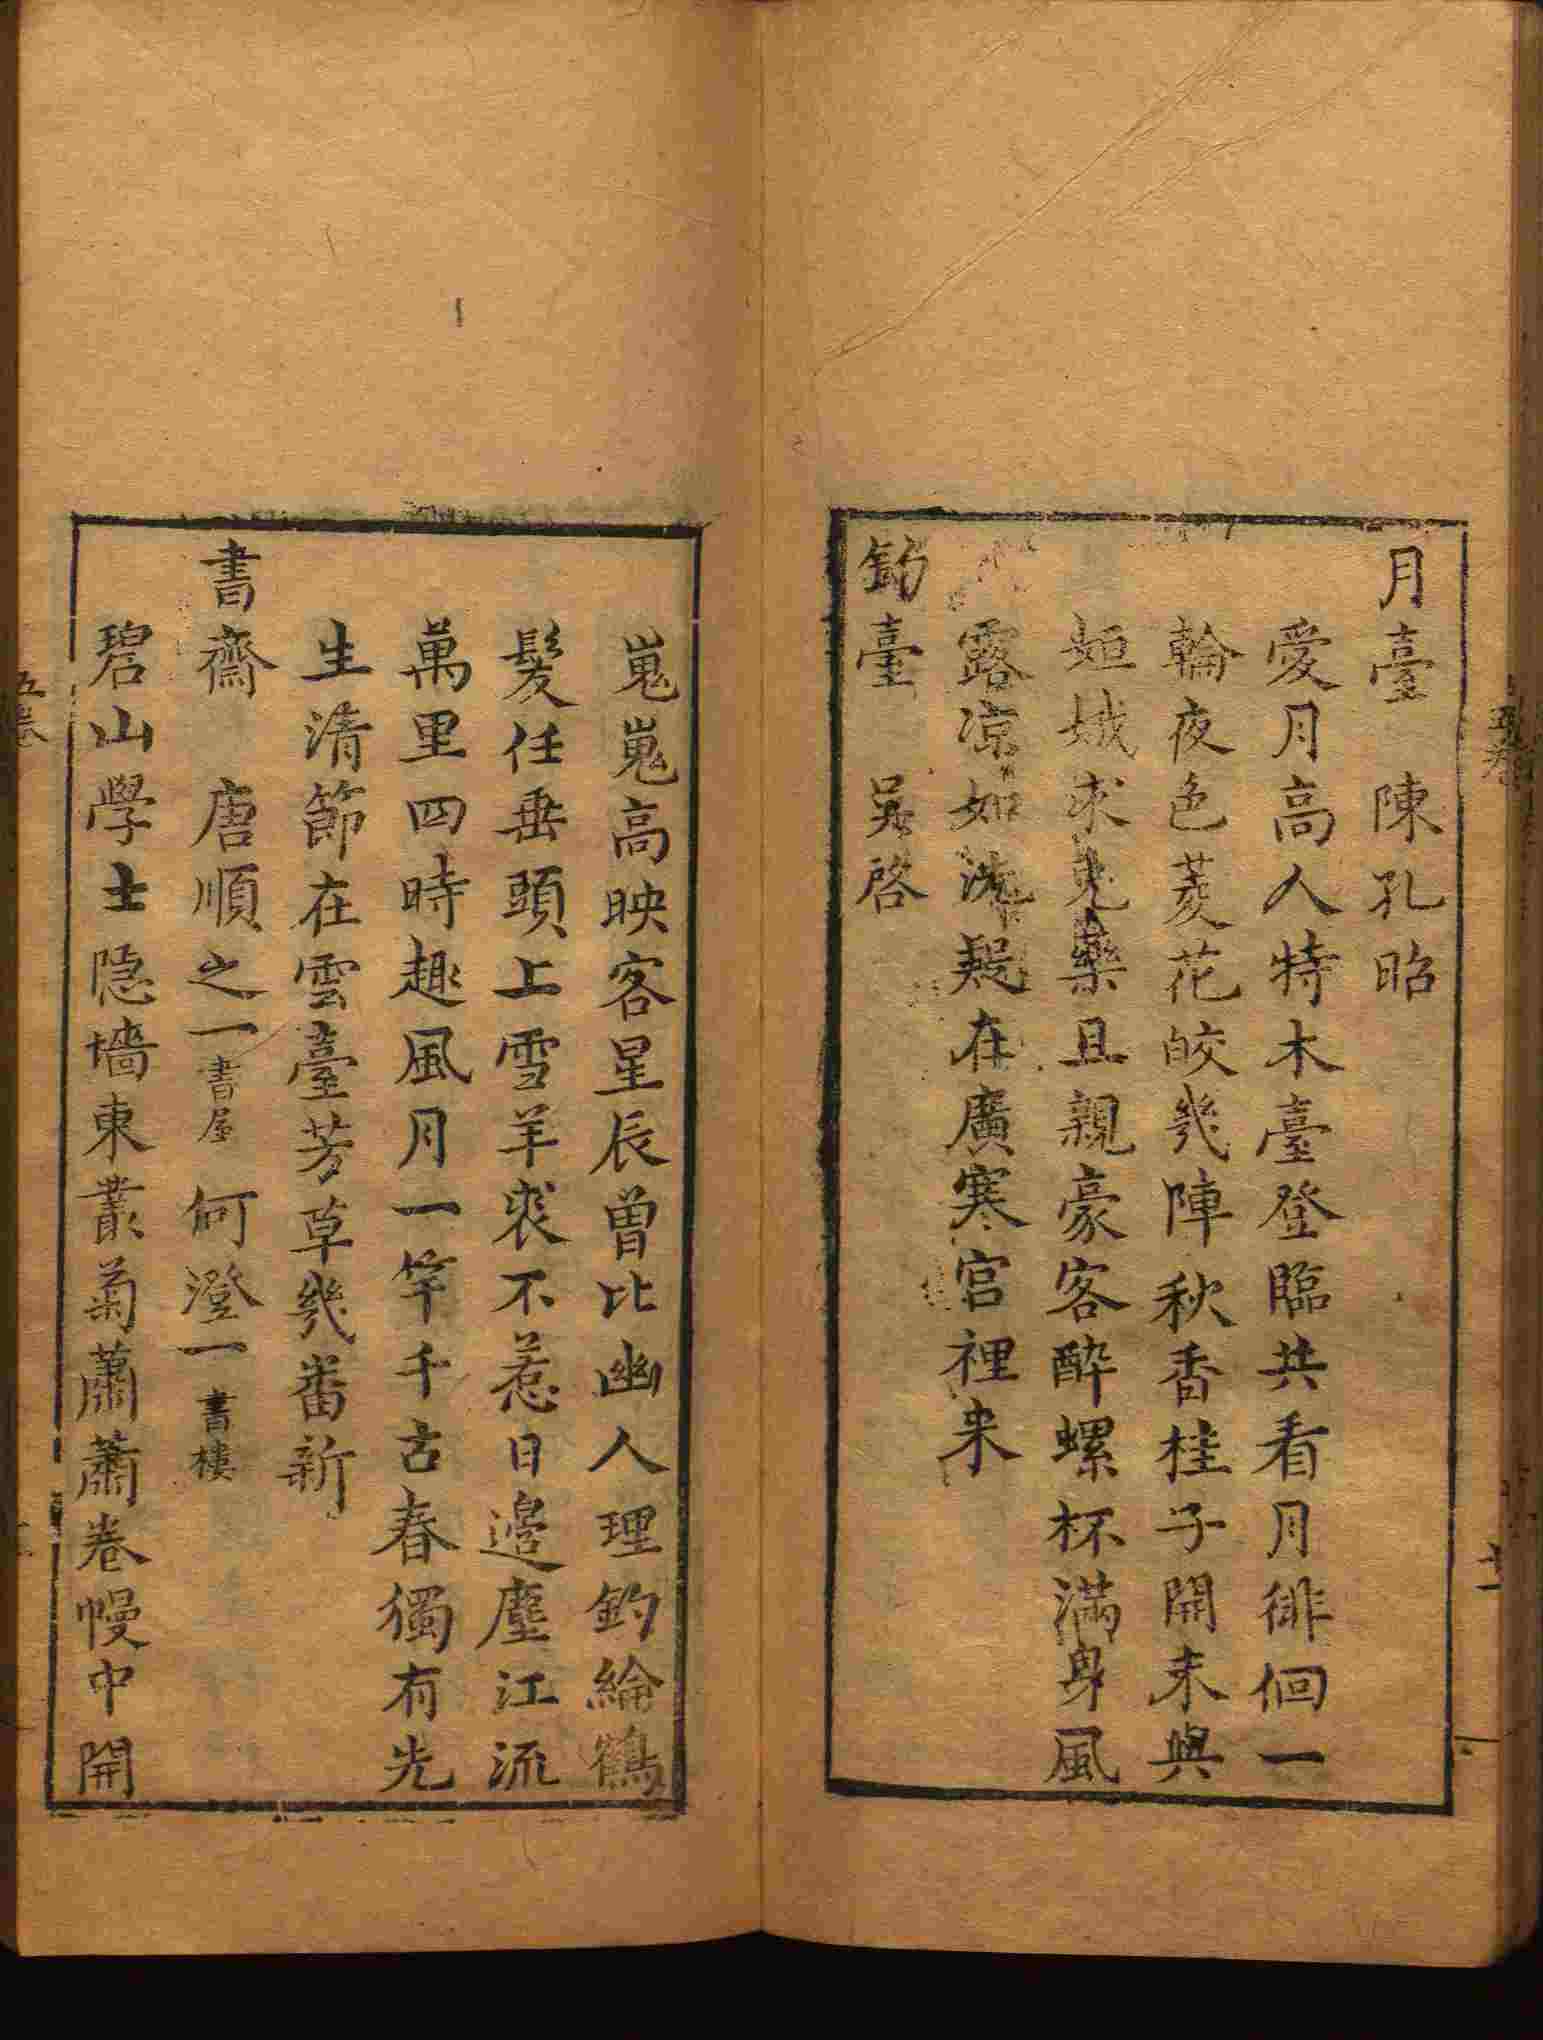 月臺　陳孔昭
愛月高人特木臺登臨共看月徘徊一
輪夜色菱花皎幾陣秋香桂子開未與
姮娥求兎藥且親豪客醉螺杯滿身風
露凉如洗疑在廣寒宮裡来
釣臺　吳啓
嵬嵬高映客星辰曽比幽人理釣綸鶴
髮任垂頭上雪羊裘不惹日邊塵江流
萬里四時趣風月一竿千古春獨有先
生清節在雲臺芳草幾番新
書齋　唐順之一書屋　何澄一書樓
碧山學士隐墻東叢菊蕭蕭卷幔中開
五卷
五卷
十一